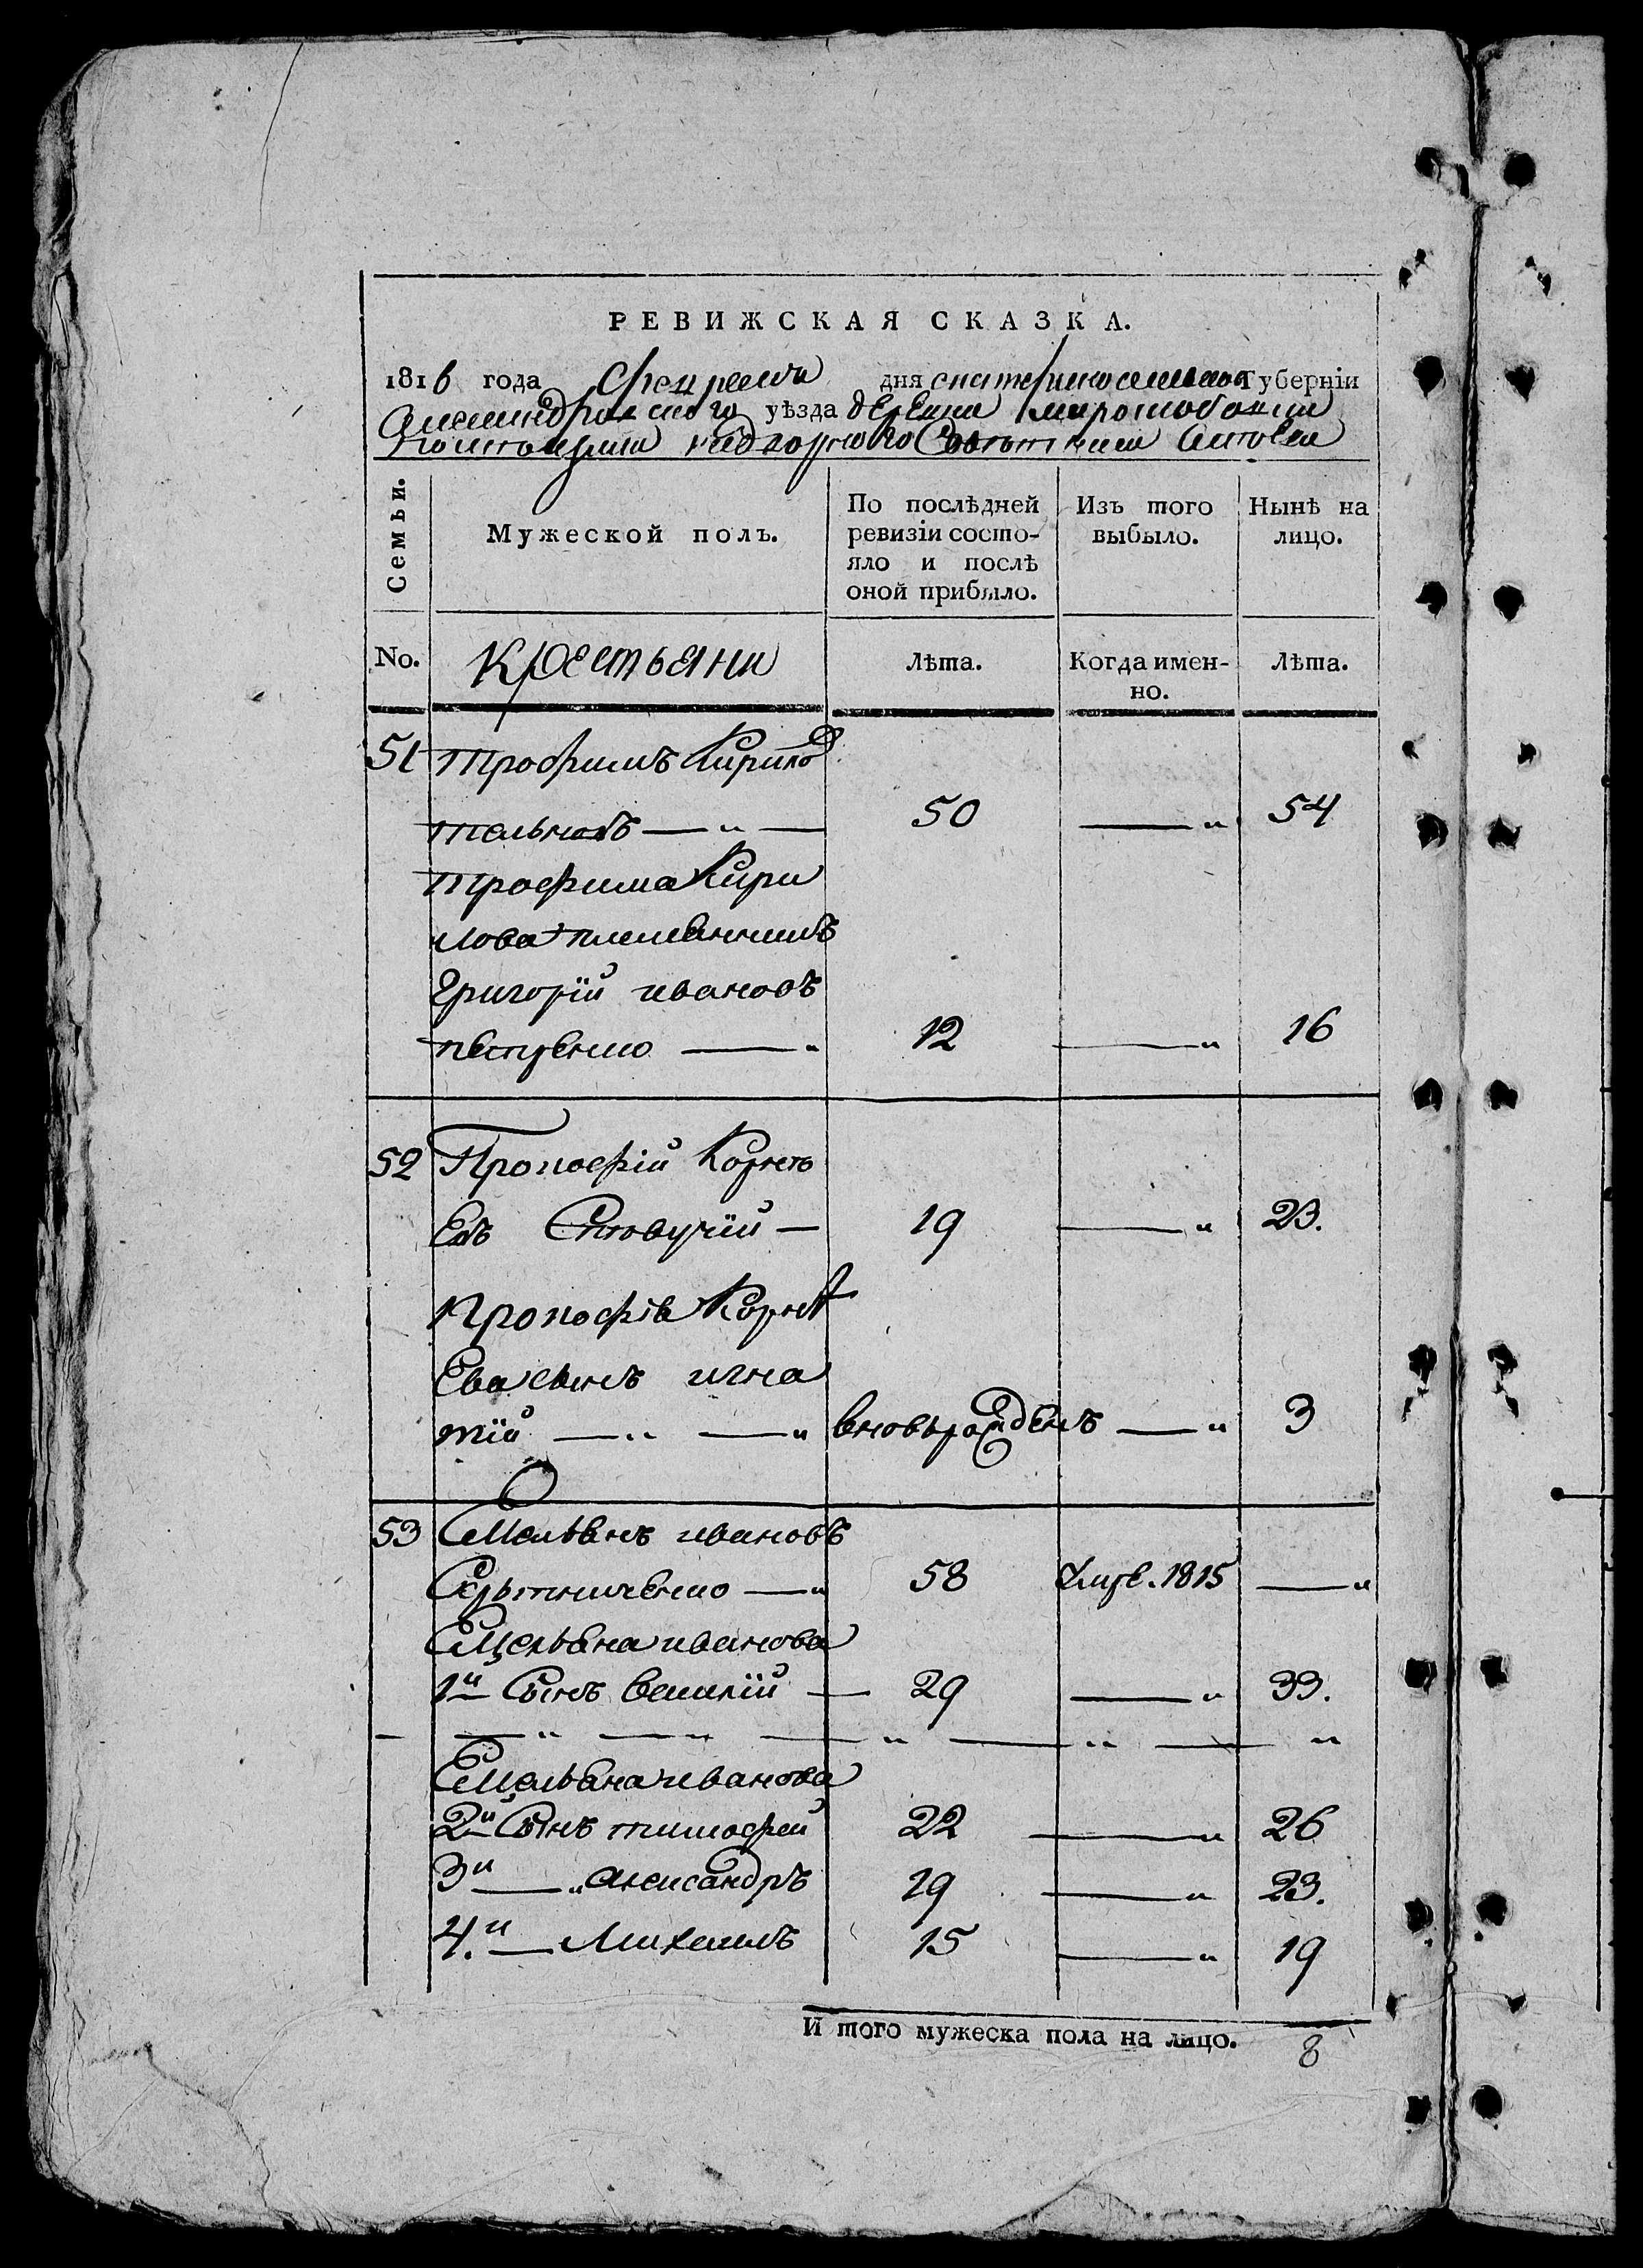 РЕВИЖСКАЯ СКАЗКА.
1816 года февраля дня екатеринославской Губерніи
александровского уѣзда деревни миролюбовки
надворного советника
Семьи.
Мужеской полъ.
По послѣдней ревизіи состо-
яло и послѣ
оной прибыло.
Изъ того
выбыло.
Нынѣ на
лицо.
No.
Крестьяни
Лѣта.
Когда имен-
но.
Лѣта.
51 трофимъ Кирило
— " — 50 — " 54
трофима Кири
лова племянникъ
Григорій ивановъ
— " 12 — " 16
52 Прокофій Корнѣ
евъ — 19 — " 23.
Прокофія Корнѣ
ева сынъ игна
тій — " — " вновьрожденъ — " 3
53 Емельянъ ивановъ
— " 58 умре. 1815 — "
Емельяна иванова
1й Сынъ василій — 29 — " 33.
— — " — — — " — " — "
Емельяна иванова
2й Сынъ тимофей 22 — " 26
3й — " александръ 19 — " 23.
4.й — Михаилъ 15 — " 19
И того мужеска пола на лицо. 8